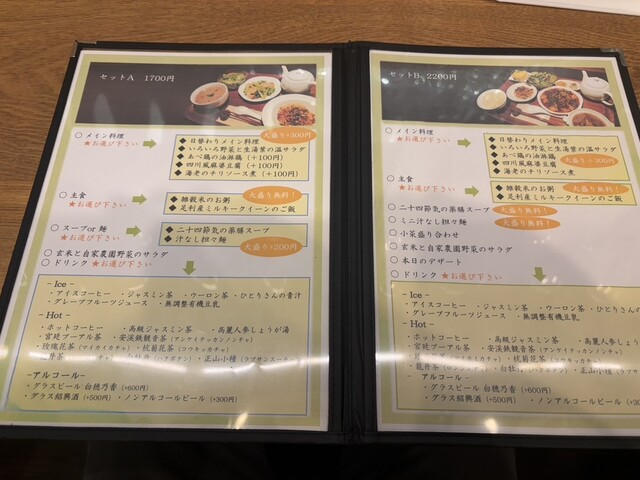 セットA 1700円
○ メイン料理
★お選び下さい
大盛り+300円
◆ 日替わりメイン料理
◆ いろいろ野菜と生湯葉の温サラダ
◆ あべ鶏の油淋鶏 (+100円)
◆ 四川風麻婆豆腐 (+100円)
◆ 海老のチリソース煮 (+100円)
○ 主食
★お選び下さい
大盛り無料!
◆ 雑穀米のお粥
◆ 足利産ミルキークイーンのご飯
○ スープor 麺
★お選び下さい
◆ 二十四節気の薬膳スープ
◆ 汁なし担々麺
大盛り+200円
○ 玄米と自家農園野菜のサラダ
○ ドリンク ★お選び下さい
- Ice -
・アイスコーヒー ・ジャスミン茶 ・ウーロン茶 ・ひとりさんの青汁
・グレープフルーツジュース ・無調整有機豆乳
- Hot -
・ホットコーヒー ・高級ジャスミン茶 ・高麗人参しょうが湯
・宮廷プーアル茶 ・安渓鉄観音茶 (アンケイテッカンノンチャ)
・玫瑰花茶 (マイカイカチャ) ・杭菊花茶 (コウキッカチャ)
・正山小種 (ラプサンスー
-アルコール-
・グラスビール 白穂乃香 (+600円)
・グラス紹興酒 (+500円) ・ノンアルコールビール (+300円)
セットB 2200円
○ メイン料理
★お選び下さい
◆ 日替わりメイン料理
◆ いろいろ野菜と生湯葉の温サラダ
◆ あべ鶏の油淋鶏
大盛り+300円
◆ 四川風麻婆豆腐
◆ 海老のチリソース煮
○ 主食
★お選び下さい
大盛り無料!
◆ 雑穀米のお粥
◆ 足利産ミルキークイーンのご飯
○ 二十四節気の薬膳スープ 大盛り無料!
○ ミニ汁なし担々麺 大盛り無料!
○ 小菜盛り合わせ
○ 玄米と自家農園野菜のサラダ
○ 本日のデザート
○ ドリンク ★お選び下さい
- Ice -
・アイスコーヒー ・ジャスミン茶 ・ウーロン茶 ・ひとりさんの
・グレープフルーツジュース ・無調整有機豆乳
- Hot -
・ホットコーヒー ・高級ジャスミン茶 ・高麗人参しょう
・宮廷プーアル茶 ・安渓鉄観音茶 (アンケイテッカンノンチャ)
・杭菊花茶 (コウキッカチャ)
・正山小種 (ラプサンスー
- アルコール -
・グラスビール 白穂乃香 (+600円)
・グラス紹興酒 (+500円) ・ノンアルコールビール (+30